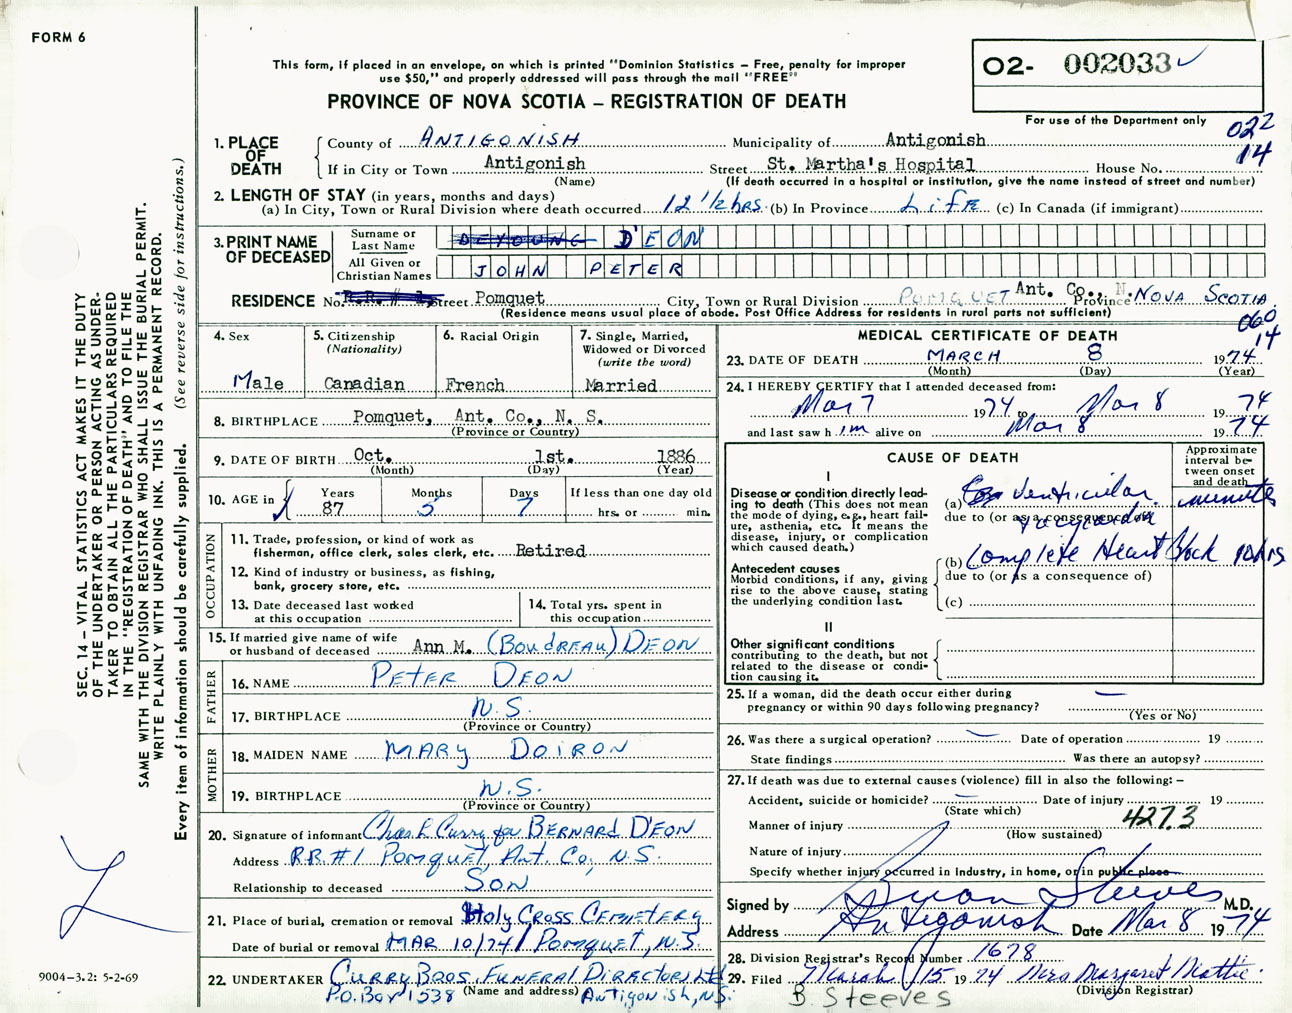 FORM 6
This form, if placed in an envelope, on which is printed "Dominion Statistics – Free, penalty for improper
use $50," and properly addressed will pass through the mail "FREE"
O2- 002033 ✓
PROVINCE OF NOVA SCOTIA – REGISTRATION OF DEATH
For use of the Department only
022
14
1. PLACE OF DEATH
County of ANTIGONISH Municipality of Antigonish
If in City or Town Antigonish Street St. Martha's Hospital House No.
(Name) (If death occurred in a hospital or institution, give the name instead of street and number)
2. LENGTH OF STAY (in years, months and days)
(a) In City, Town or Rural Division where death occurred 12 1/2 hrs. (b) In Province Life (c) In Canada (if immigrant)
3. PRINT NAME OF DECEASED
Surname or Last Name DEYOUNG D'EON
All Given or Christian Names JOHN PETER
RESIDENCE No. R.R. # 1 Street Pomquet City, Town or Rural Division POMQUET Ant. Co., N. Province NOVA SCOTIA
(Residence means usual place of abode. Post Office Address for residents in rural parts not sufficient)
060
14
4. Sex
Male
5. Citizenship
(Nationality)
Canadian
6. Racial Origin
French
7. Single, Married,
Widowed or Divorced
(write the word)
Married
8. BIRTHPLACE Pomquet, Ant. Co., N. S.
(Province or Country)
9. DATE OF BIRTH Oct. 1st. 1886
(Month) (Day) (Year)
10. AGE in
Years 87
Months 5
Days 7
If less than one day old
hrs. or min.
OCCUPATION
11. Trade, profession, or kind of work as
fisherman, office clerk, sales clerk, etc. Retired
12. Kind of industry or business, as fishing,
bank, grocery store, etc.
13. Date deceased last worked
at this occupation
14. Total yrs. spent in
this occupation
15. If married give name of wife
or husband of deceased Ann M. (BOUDREAU) DEON
FATHER
16. NAME PETER DEON
17. BIRTHPLACE N.S.
(Province or Country)
MOTHER
18. MAIDEN NAME MARY DOIRON
19. BIRTHPLACE N.S.
(Province or Country)
20. Signature of informant Chas L Curry for BERNARD D'EON
Address RR#1 POMQUET, ANT. CO, N.S.
Relationship to deceased SON
21. Place of burial, cremation or removal Holy CROSS CEMETERY
Date of burial or removal MAR 10/74 / POMQUET, N.S.
22. UNDERTAKER CURRY BROS. FUNERAL DIRECTORS Ltd
(Name and address)
P.O. BOX 1538 ANTIGONISH, N.S.
MEDICAL CERTIFICATE OF DEATH
23. DATE OF DEATH MARCH 8 1974
(Month) (Day) (Year)
24. I HEREBY CERTIFY that I attended deceased from:
Mar 7 1974 to Mar 8 1974
and last saw him alive on Mar 8 1974
CAUSE OF DEATH
Approximate
interval be-
tween onset
and death
I
Disease or condition directly lead-
ing to death (This does not mean
the mode of dying, e.g., heart fail-
ure, asthenia, etc. It means the
disease, injury, or complication
which caused death.)
(a) Ventricular minutes
due to (or as a consequence of)
Antecedent causes
Morbid conditions, if any, giving
rise to the above cause, stating
the underlying condition last.
(b) Complete Heart Block 10 hrs
due to (or as a consequence of)
(c)
II
Other significant conditions
contributing to the death, but not
related to the disease or condi-
tion causing it.
25. If a woman, did the death occur either during
pregnancy or within 90 days following pregnancy? —
(Yes or No)
26. Was there a surgical operation? — Date of operation 19
State findings Was there an autopsy?
27. If death was due to external causes (violence) fill in also the following: –
Accident, suicide or homicide? — Date of injury 19
(State which)
Manner of injury 427.3
(How sustained)
Nature of injury
Specify whether injury occurred in Industry, in home, or in public place
Signed by Brian Steeves M.D.
Address Antigonish Date Mar 8 1974
28. Division Registrar's Record Number 1678
29. Filed March 15 1974 Mrs Margaret Mattie
(Division Registrar)
B. Steeves
SEC. 14 – VITAL STATISTICS ACT MAKES IT THE DUTY
OF THE UNDERTAKER OR PERSON ACTING AS UNDER-
TAKER TO OBTAIN ALL THE PARTICULARS REQUIRED
IN THE "REGISTRATION OF DEATH" AND TO FILE THE
SAME WITH THE DIVISION REGISTRAR WHO SHALL ISSUE THE BURIAL PERMIT.
WRITE PLAINLY WITH UNFADING INK. THIS IS A PERMANENT RECORD.
Every item of information should be carefully supplied. (See reverse side for instructions.)
9004–3.2: 5-2-69